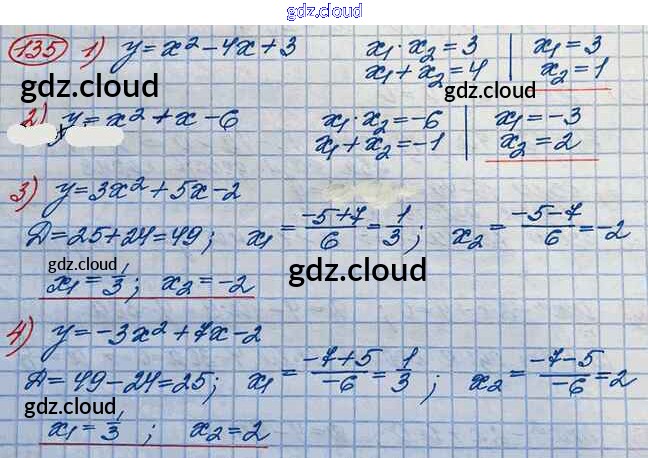 gdz.cloud
135 1) y = x² - 4x + 3 x₁ · x₂ = 3 | x₁ = 3
x₁ + x₂ = 4 | x₂ = 1
gdz.cloud gdz.cloud
2) y = x² + x - 6 x₁ · x₂ = -6 | x₁ = -3
x₁ + x₂ = -1 | x₂ = 2
3) y = 3x² + 5x - 2
D = 25 + 24 = 49; x₁ = (-5+7)/6 = 1/3; x₂ = (-5-7)/6 = -2
gdz.cloud gdz.cloud
x₁ = 1/3; x₂ = -2
4) y = -3x² + 7x - 2
D = 49 - 24 = 25; x₁ = (-7+5)/-6 = 1/3; x₂ = (-7-5)/-6 = 2
gdz.cloud gdz.cloud
x₁ = 1/3; x₂ = 2